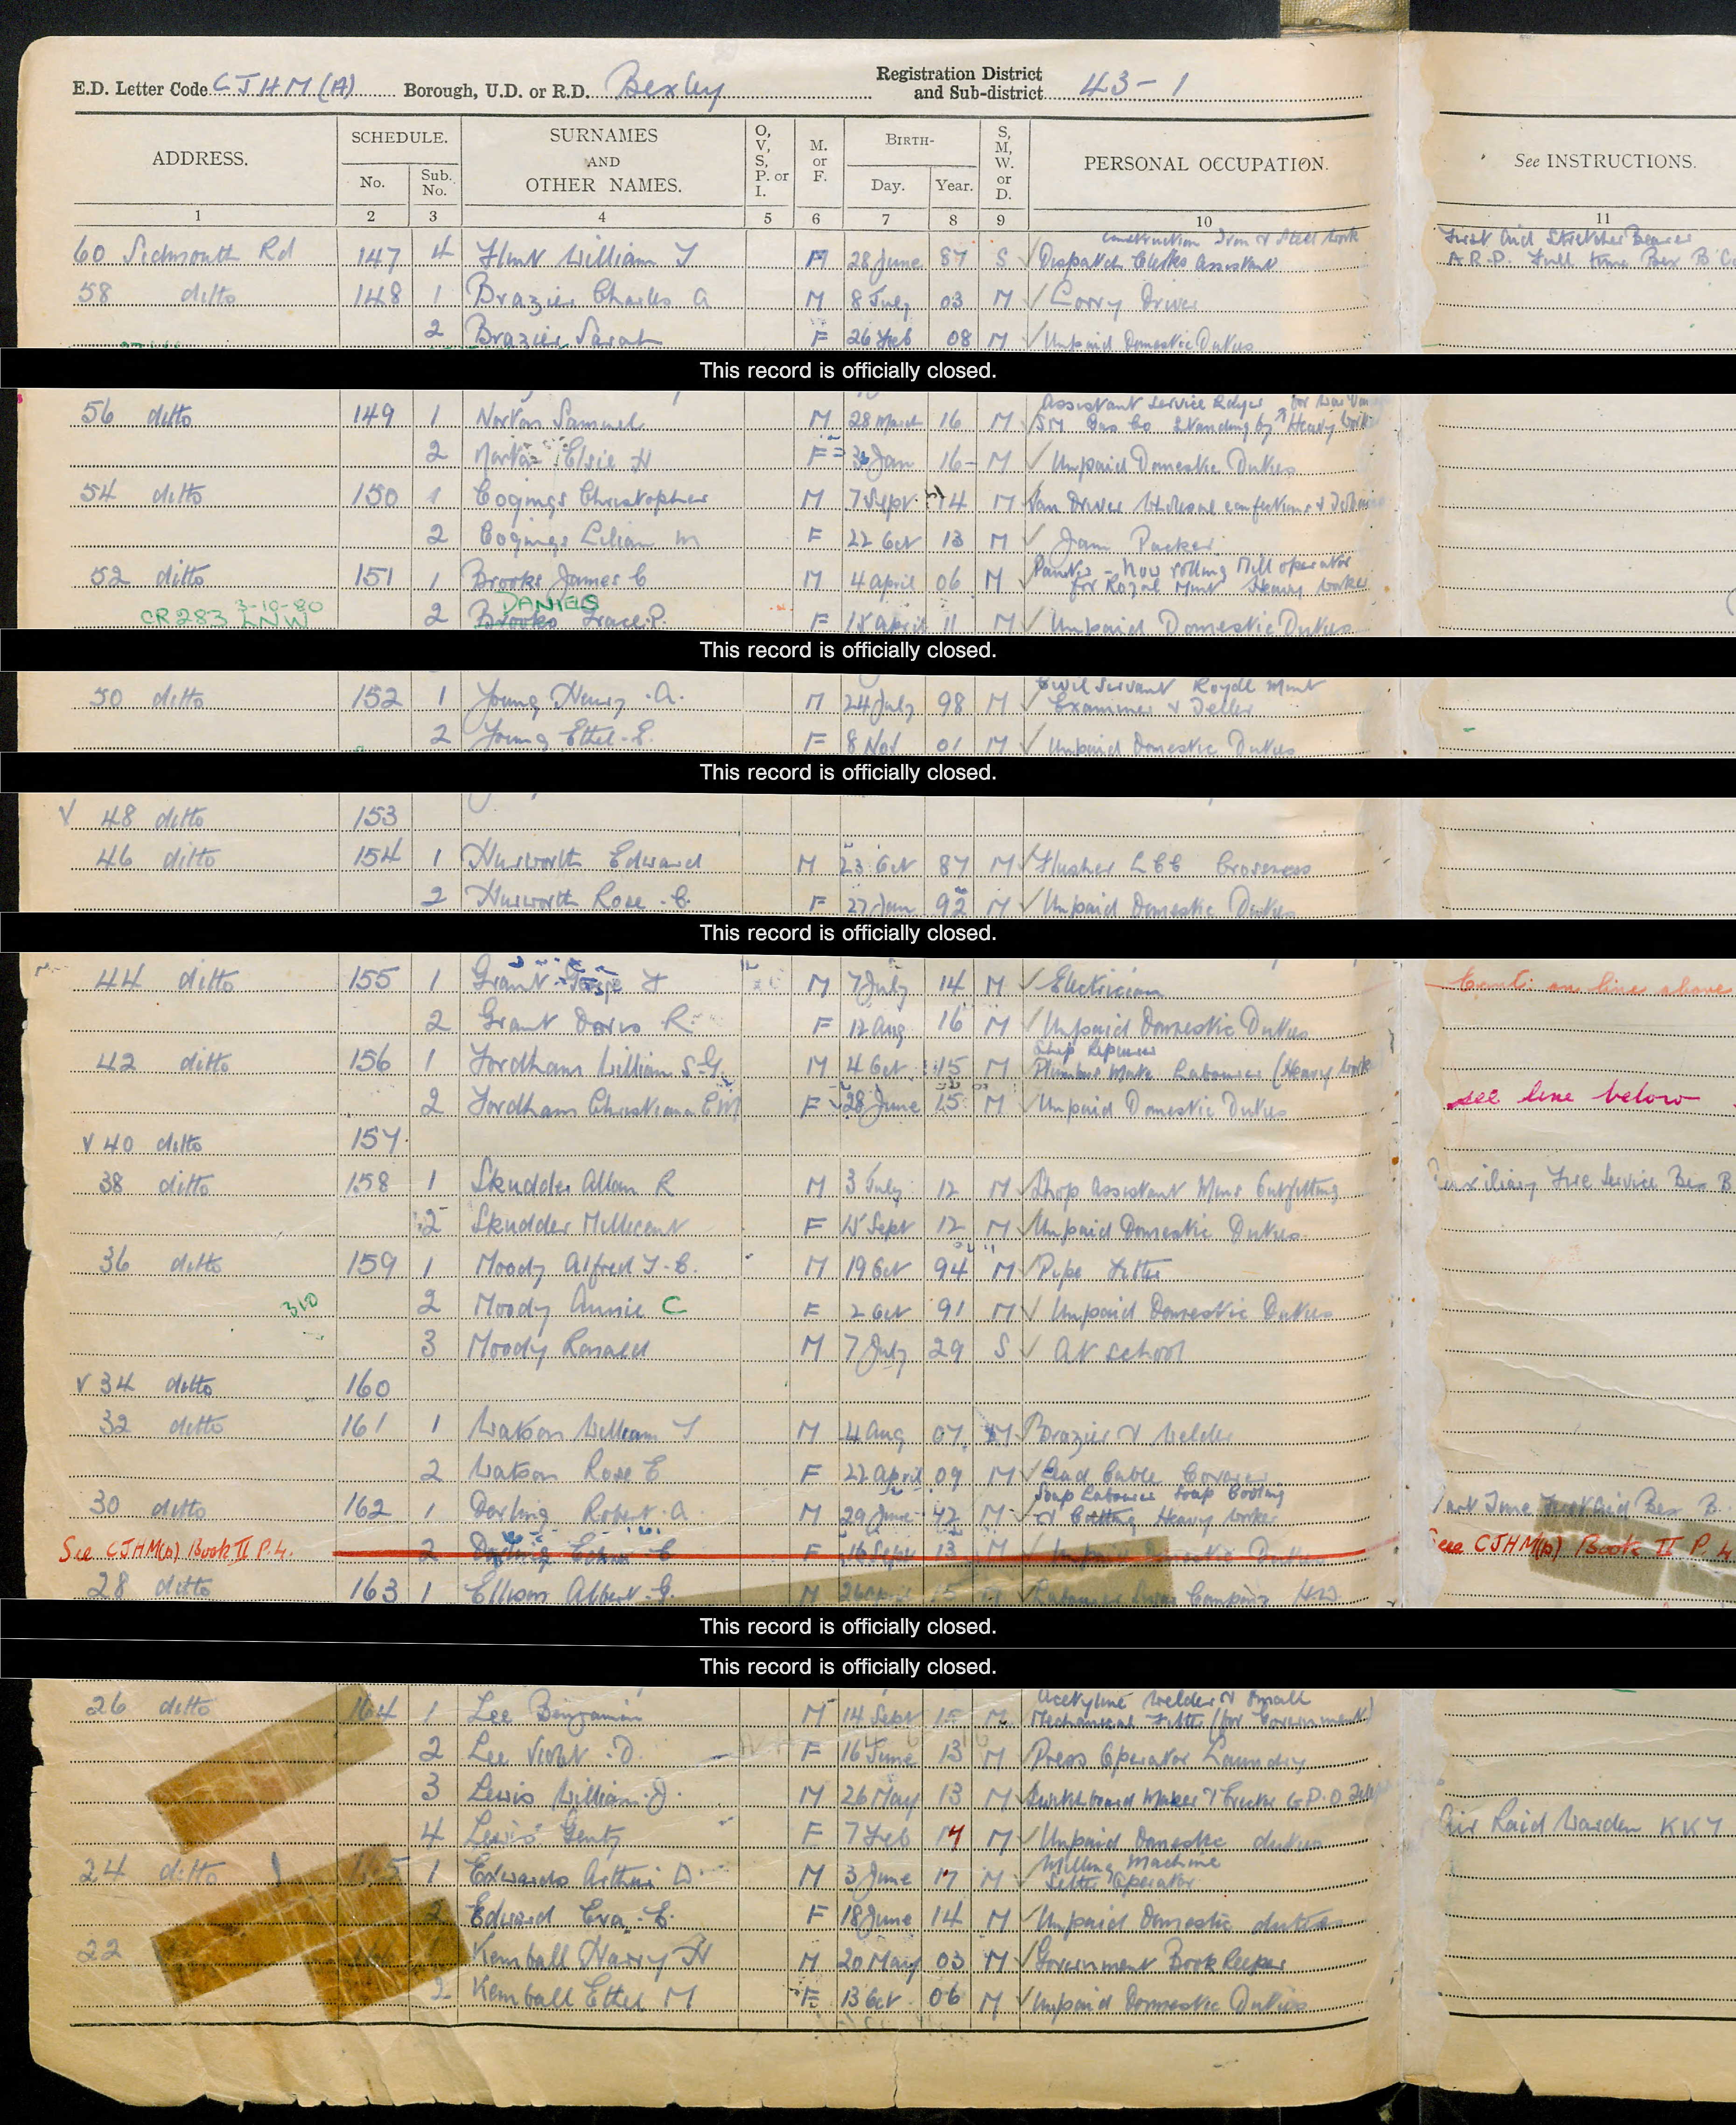 E.D. Letter Code CJHM(A) Borough, U.D. or R.D. Bexley Registration District and Sub-district 43-1
ADDRESS. SCHEDULE. No. Sub. No. SURNAMES AND OTHER NAMES. O, V, S, P. or I. M. or F. BIRTH- Day. Year. S, M, W. or D. PERSONAL OCCUPATION. See INSTRUCTIONS.
1 2 3 4 5 6 7 8 9 10 11
60 Sidmouth Rd 147 4 Hunt William J M 28 June 87 S Construction Iron & Steel Work Dispatch Clerks Assistant First Aid Stretcher Bearer A.R.P. Full time Bex B Co
58 ditto 148 1 Brazier Charles A M 8 July 03 M Lorry Driver
2 Brazier Sarah F 26 Feb 08 M Unpaid Domestic Duties
This record is officially closed.
56 ditto 149 1 Norton Samuel M 28 March 16 M Assistant Service for War Standing by Heavy Work
2 Norton Elsie H F Jan 16 M Unpaid Domestic Duties
54 ditto 150 1 Cogings Christopher M 7 Sept 14 M Van Driver Wholesale
2 Cogings Lilian M F 22 Oct 13 M Jam Packer
52 ditto 151 1 Brooks James C M 4 April 06 M Painter - Now rolling Mill operator for Royal Mint Heavy Worker
CR283 3-10-80 LNW 2 Brooks DANIELS Grace P. F 18 April 11 M Unpaid Domestic Duties
This record is officially closed.
50 ditto 152 1 Young Henry A. M 24 July 98 M Civil Servant Royal Mint Examiner & Teller
2 Young Ethel E. F 8 Nov 01 M Unpaid Domestic Duties
This record is officially closed.
V 48 ditto 153
46 ditto 154 1 Husworth Edward M 23 Oct 87 M Flusher LCC Crossness
2 Husworth Rose C. F 27 Jan 92 M Unpaid Domestic Duties
This record is officially closed.
44 ditto 155 1 Grant George F M 7 July 14 M Electrician Cont: on line above
2 Grant Doris R. F 12 Aug 16 M Unpaid Domestic Duties
42 ditto 156 1 Fordham William S G. M 4 Oct 15 M Ship Repairer Plumbers Mate Labourer (Heavy Work
2 Fordham Christiana E M F 28 June 15 M Unpaid Domestic Duties see line below
V 40 ditto 157
38 ditto 158 1 Skudder Allan R M 3 July 12 M Shop Assistant Mens Outfitting Auxiliary Fire Service Bex B
2 Skudder Millicent F 15 Sept 12 M Unpaid Domestic Duties
36 ditto 159 1 Moody Alfred J. C. M 19 Oct 94 M Pipe Fitter
310 2 Moody Annie C F 2 Oct 91 M Unpaid Domestic Duties
3 Moody Ronald M 7 July 29 S At school
V 34 ditto 160
32 ditto 161 1 Watson William J M 4 Aug 07 M Brazier & Welder
2 Watson Rose E F 22 April 09 M Lead Cable Coverer
30 ditto 162 1 Darling Robert A. M 29 June 42 M Soap Labourer Soap Cooling & Cutting Heavy Worker Part Time First Aid Bex B.
See CJHM(A) Book II P.4. 2 Darling Edna C F 16 Sept 13 M Unpaid Domestic Duties See CJHM(A) Book II P 4
28 ditto 163 1 Ellison Albert G. M 26 April 15 M Labourer H.W.
This record is officially closed.
This record is officially closed.
26 ditto 164 1 Lee Benjamin M 14 Sept 15 M Acetylene Welder & Small Mechanical Fitter (for Government)
2 Lee Violet D. F 16 June 13 M Press Operator Laundry
3 Lewis William J. M 26 May 13 M Switchboard Maker & Erector G.P.O
4 Lewis F 7 Feb 17 M Unpaid Domestic duties Air Raid Warden KK7
24 ditto 165 1 Edwards Arthur D M 3 June 17 M Milling Machine Setter Operator
2 Edward Eva E. F 18 June 14 M Unpaid Domestic duties
22 Kemball Harry H M 20 May 03 M Government Book Keeper
2 Kemball Ethel M F 13 Oct 06 M Unpaid Domestic Duties